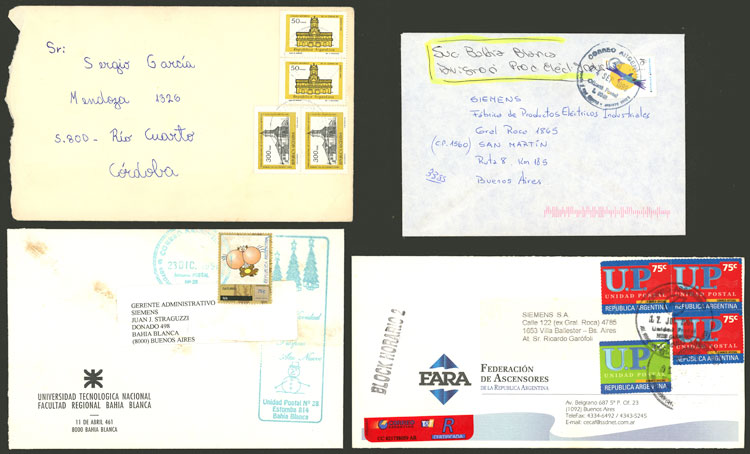 Sr:
Sergio García
Mendoza 1326
5.800- Río Cuarto
Córdoba
50
REPUBLICA ARGENTINA
50
REPUBLICA ARGENTINA
300
300
Suc Bahía Blanca
CORREO
SIEMENS
Fábrica de Productos Eléctricos Industriales
Gral Roca 1865
(C.P. 1560) SAN MARTÍN
Ruta 8 Km 18,5
Buenos Aires
23 DIC.
GERENTE ADMINISTRATIVO
SIEMENS
JUAN J. STRAGUZZI
DONADO 498
BAHIA BLANCA
(8000) BUENOS AIRES
Unidad Postal Nº 28
Estomba 814
Bahía Blanca
UNIVERSIDAD TECNOLOGICA NACIONAL
FACULTAD REGIONAL BAHIA BLANCA
11 DE ABRIL 461
8000 BAHIA BLANCA
75c
UP
UNIDAD POSTAL
REPUBLICA ARGENTINA
75c
UP
UNIDAD POSTAL
REPUBLICA ARGENTINA
75c
UP
UNIDAD POSTAL
REPUBLICA ARGENTINA
UP
UNIDAD POSTAL
REPUBLICA ARGENTINA
SIEMENS S.A.
Calle 122 (ex Gral. Roca) 4785
1653 Villa Ballester - Bs. Aires
At. Sr. Ricardo Garófoli
BLOCK HORARIO 2
FARA
FEDERACIÓN
DE ASCENSORES
DE LA REPUBLICA ARGENTINA
Av. Belgrano 687 5º P. Of. 23
(1092) Buenos Aires
TeleFax: 4334-6492 / 4343-5245
R
CERTIFICADA